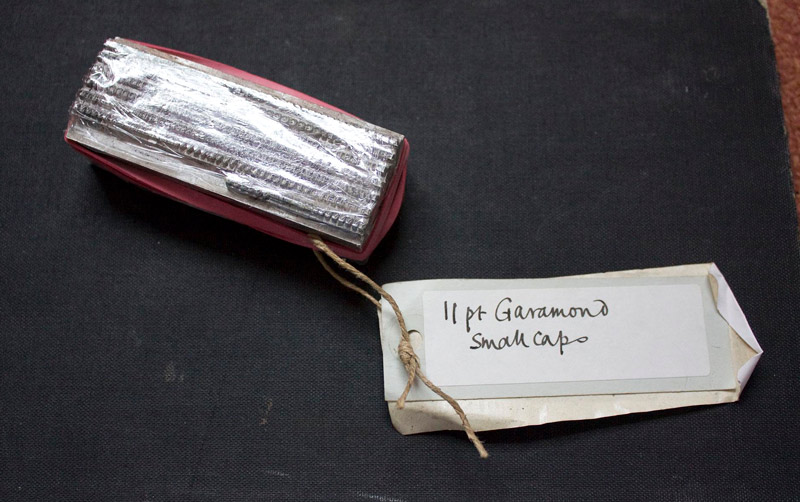 11 pt Garamond
Small caps